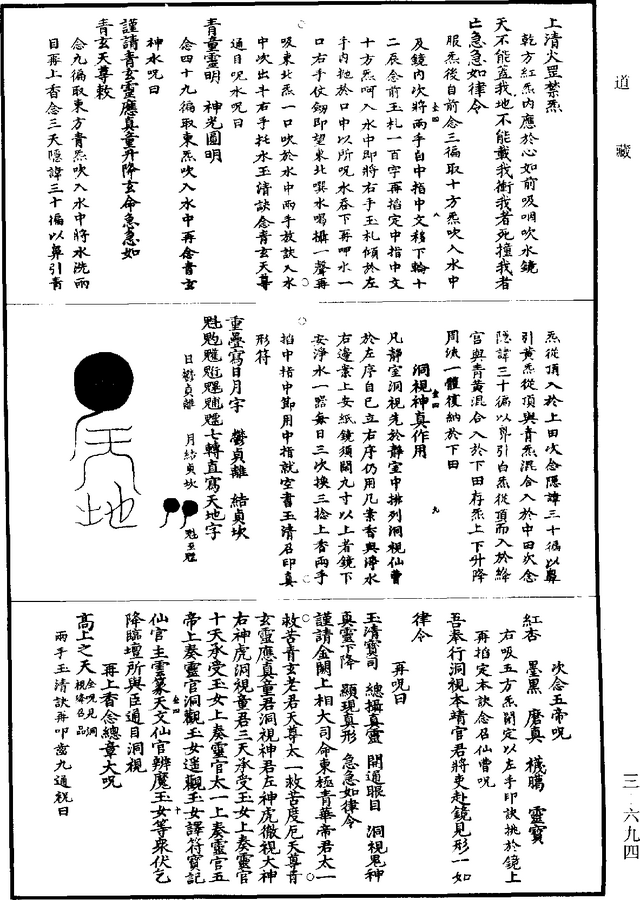 道藏
上清火罡禁炁
乾方紅炁内應於心如前吸咽吹水鏡
天不能蓋我地不能載我衝我者死撞我者
亡急急如律令
服炁後自前念三徧取十方炁吹入水中
及鏡内次將兩手自中指中文移下輪十
二辰念前玉札一百字再掐定中指中文
十方炁呵入水中即將右手玉札傾於左
手内抱於口中以所呪水吞下再呷水一
口右手仗劔即望東北噀水喝攝一聲再
吸東北炁一口吹於水中兩手放訣入水
中次出斗右手托水玉清訣念青玄天尊
通目呪水呪曰
青童靈明　神光圓明
念四十九徧取東炁吹入水中再念青玄
神水呪曰
謹請青玄靈應真童升降玄命急急如
青玄天尊敕
念九徧取東方青炁吹入水中將水洗兩
目再上香念三天隱諱三十徧以鼻引青
炁從頂入於上田次念隱諱三十徧以鼻
引黄炁從頂與青炁混合入於中田次念
隱諱三十徧以鼻引白炁從頂而入於絳
宫與青黄混合入於下田存炁上下升降
周流一體復納於下田
洞視神真作用
凡靜室洞視先於靜室中排列洞視仙曹
於左序自已立右序仍用几案香與淨水
右邊案上安紙鏡須闊九寸以上者鏡下
安淨水一器每日三次换三捻上香兩手
掐中指中節用中指就空書玉清召印真
形符
重疊寫日月字　鬱貞離　結貞坎
七轉直寫天地字
日鬱貞離　月結貞坎
天地
次念五帝呪
紅杏　墨黑　磨真　襪𦡱　靈寶
右吸五方炁閉定以左手印訣挑於鏡上
再掐定本訣念召仙曹呪
吾奉行洞視本靖官君將吏赴鏡見形一如
律令
再呪曰
玉清寶司　總攝真靈　開通眼目　洞視鬼神
真靈下降　顯現真形　急急如律令
謹請金闕上相大司命東極青華帝君太一
救苦青玄老君天尊太一救苦度厄天尊青
玄靈應真童君洞視神君左神虎微視大神
右神虎洞視童君三天承受玉女上奏靈官
十天承受玉女上奏靈官太一上奏靈官五
帝上奏靈官洞觀玉女遥觀玉女譯符寶記
仙官主雲篆天文仙官辨魔玉女等衆伏乞
降臨壇所與臣通目洞視
再上香念總章大呪
高上之天
兩手玉清訣再叩齒九通祝曰
三·六九四